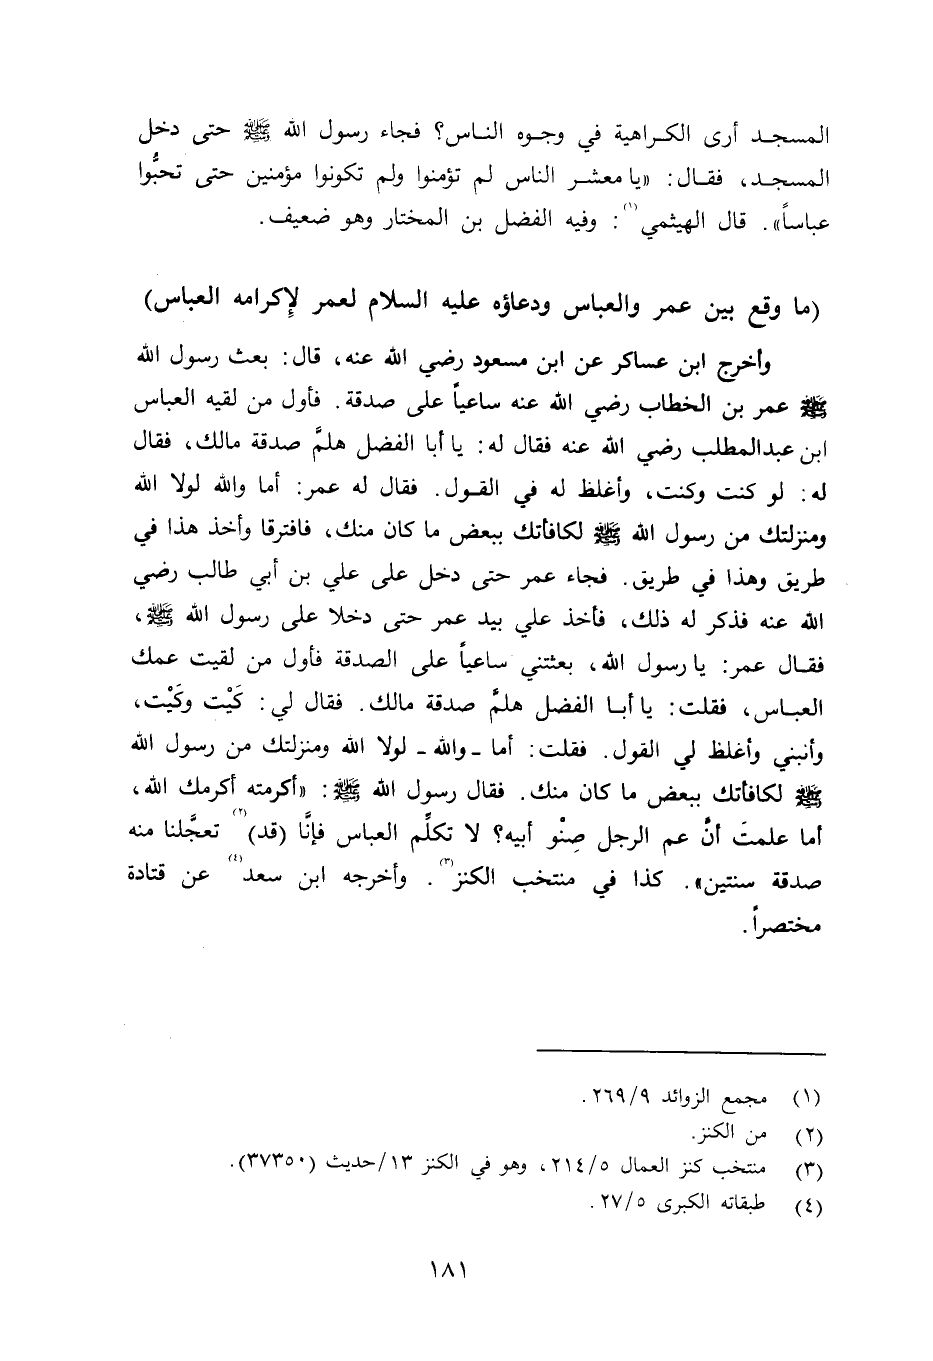 المسجد أرى الكراهية في وجوه الناس؟ فجاء رسول الله ﷺ حتى دخل
المسجد، فقال: «يا معشر الناس لم تؤمنوا ولم تكونوا مؤمنين حتى تحبُّوا
عباساً». قال الهيثمي(١): وفيه الفضل بن المختار وهو ضعيف.
(ما وقع بين عمر والعباس ودعاؤه عليه السلام لعمر لإكرامه العباس)
وأخرج ابن عساكر عن ابن مسعود رضي الله عنه، قال: بعث رسول الله
ﷺ عمر بن الخطاب رضي الله عنه ساعياً على صدقة. فأول من لقيه العباس
ابن عبدالمطلب رضي الله عنه فقال له: يا أبا الفضل هلمَّ صدقة مالك، فقال
له: لو كنت وكنت، وأغلظ له في القول. فقال له عمر: أما والله لولا الله
ومنزلتك من رسول الله ﷺ لكافأتك ببعض ما كان منك، فافترقا وأخذ هذا في
طريق وهذا في طريق. فجاء عمر حتى دخل على علي بن أبي طالب رضي
الله عنه فذكر له ذلك، فأخذ علي بيد عمر حتى دخلا على رسول الله ﷺ،
فقال عمر: يا رسول الله، بعثتني ساعياً على الصدقة فأول من لقيت عمك
العباس، فقلت: يا أبا الفضل هلمَّ صدقة مالك. فقال لي: كَيْت وكَيْت،
وأنبني وأغلظ لي القول. فقلت: أما ـ والله ـ لولا الله ومنزلتك من رسول الله
ﷺ لكافأتك ببعض ما كان منك. فقال رسول الله ﷺ: «أكرمته أكرمك الله،
أما علمتَ أنَّ عم الرجل صِنْو أبيه؟ لا تكلِّم العباس فإنَّا (قد)(٢) تعجَّلنا منه
صدقة سنتين». كذا في منتخب الكنز(٣). وأخرجه ابن سعد(٤) عن قتادة
مختصراً.
(١) مجمع الزوائد ٢٦٩/٩.
(٢) من الكنز.
(٣) منتخب كنز العمال ٢١٤/٥، وهو في الكنز ١٣/حديث (٣٧٣٥٠).
(٤) طبقاته الكبرى ٢٧/٥.
١٨١